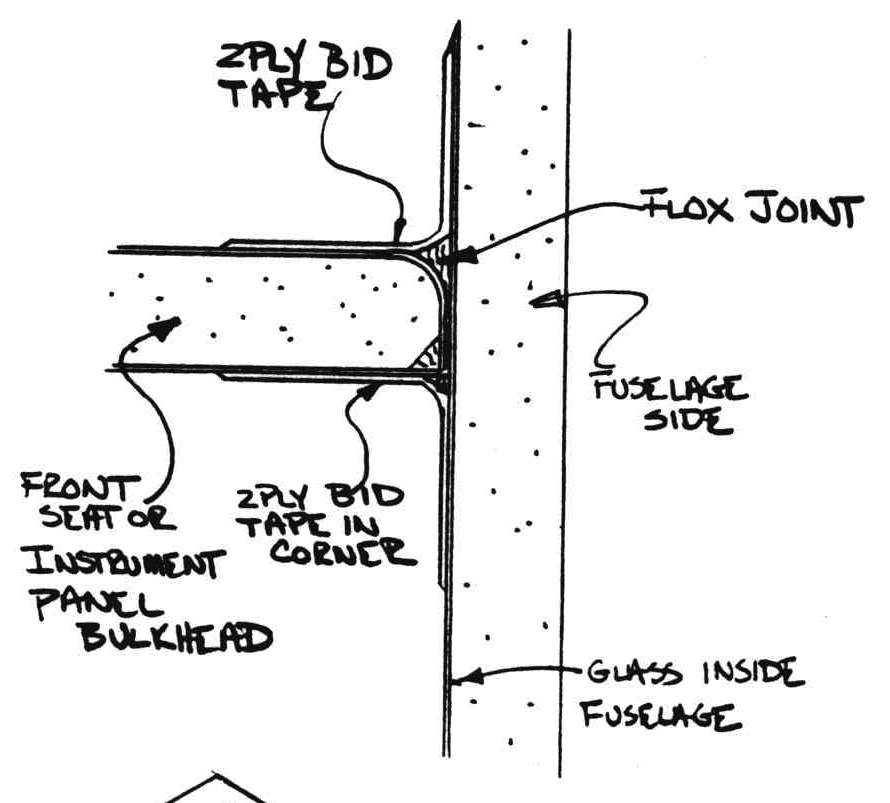 2PLY BID
TAPE
FLOX JOINT
FUSELAGE
SIDE
FRONT
SEAT OR
INSTRUMENT
PANEL
BULKHEAD
2PLY BID
TAPE IN
CORNER
GLASS INSIDE
FUSELAGE